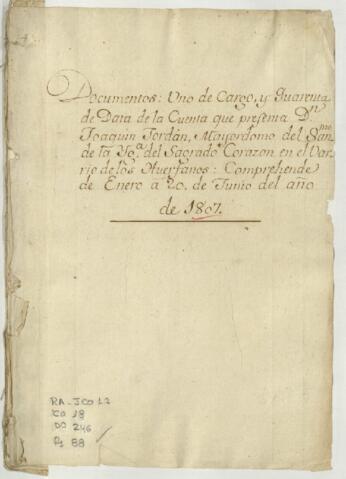 Documentos: Uno de Cargo, y Quarenta
de Data de la Cuenta que presenta Dn
Joaquin Jordán, Mayordomo del Sanmo
de la Yga. del Sagrado Corazon en el Var-
rio de los Huerfanos: Comprehende
de Enero à 20. de Junio del año
de 1807.
RA-JCO 12
CA 18
DO 246
Pg 88